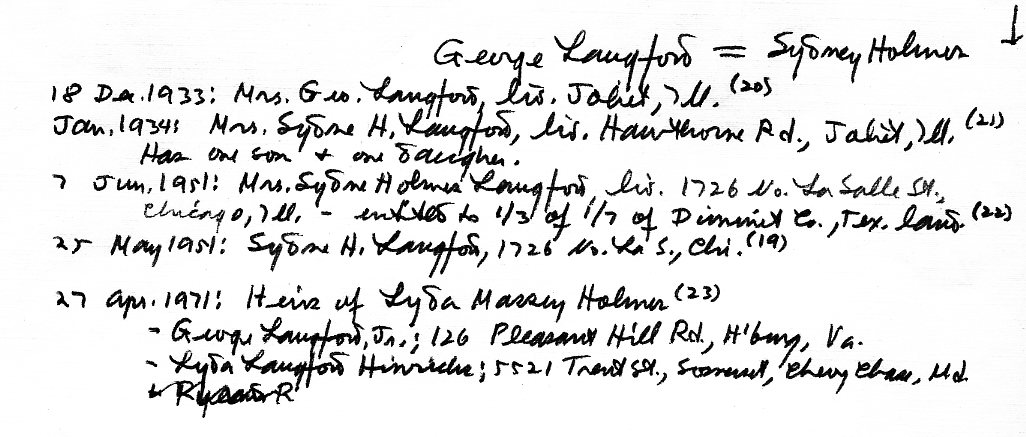 George Langford = Sydney Holmes
18 De. 1933: Mrs. Geo. Langford, liv. Joliet, Ill. (20)
Jan. 1934: Mrs. Sydne H. Langford, liv. Hawthorne Rd., Joliet, Ill. (21)
Has one son + one daughter.
7 Jun. 1951: Mrs. Sydne Holmes Langford, liv. 1726 No. La Salle St.,
Chicago, Ill. - entitled to 1/3 of 1/7 of Dimmit Co., Tex. land. (22)
25 May 1951: Sydne H. Langford, 1726 No. La S., Chi. (19)
27 Apr. 1971: Heirs of Lyda Massey Holmes (23)
- George Langford, Jr.; 126 Pleasant Hill Rd., H'burg, Va.
- Lyda Langford Hinrichs; 5521 Trent St., Somerset, Chevy Chase, Md.